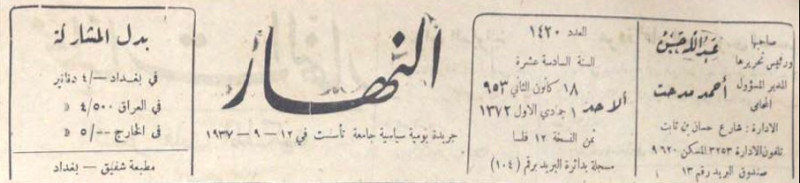 صاحبها
ورئيس تحريرها
عبدالله حسن
المدير المسؤول
المحامي
أحمد مدحت
الادارة : شارع حسان بن ثابت
تلفون الادارة ٣٢٥٣ المسكن ٩٦٢٠
صندوق البريد رقم ١٣
العدد ١٤٢٠
السنة السادسة عشرة
الاحد
١٨ كانون الثاني ٩٥٣
١ جمادي الاول ١٣٧٢
ثمن النسخة ١٢ فلسا
مسجلة بدائرة البريد برقم (١٠٤)
النهار
جريدة يومية سياسية جامعة تأسست في ١٢ – ٩ – ١٩٣٧
بدل المشاركة
في بغداد –/٤ دنانير
في العراق ٤/٥٠٠ »
في الخارج –/٥ »
مطبعة شفيق – بغداد